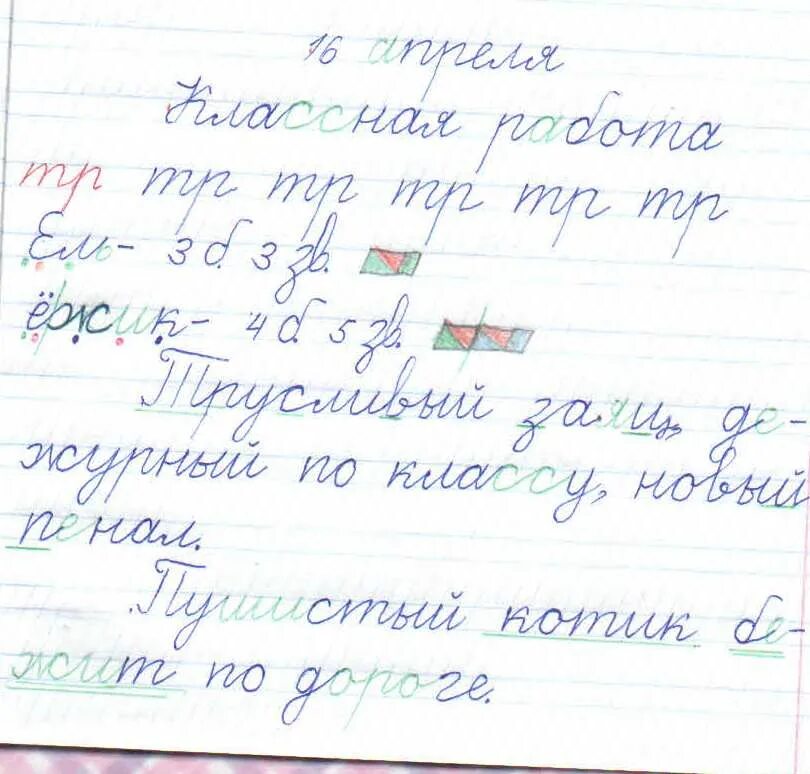 16 апреля
Классная работа
тр тр тр тр тр тр
Ель- 3 б. 3 зв.
ёржик- 4 б. 5 зв.
Трусливый заяц, де-
журный по классу, новый
пенал.
Пушистый котик бе-
жит по дороге.